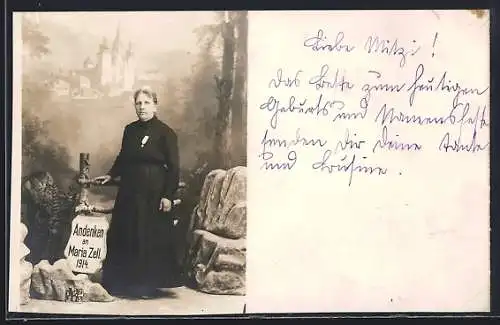 Andenken
an
Maria Zell
1914
Liebe Mitzi!
Das Beste zum heutigen
Geburts und Namensfest
senden Dir Deine Tante
und Cousine.